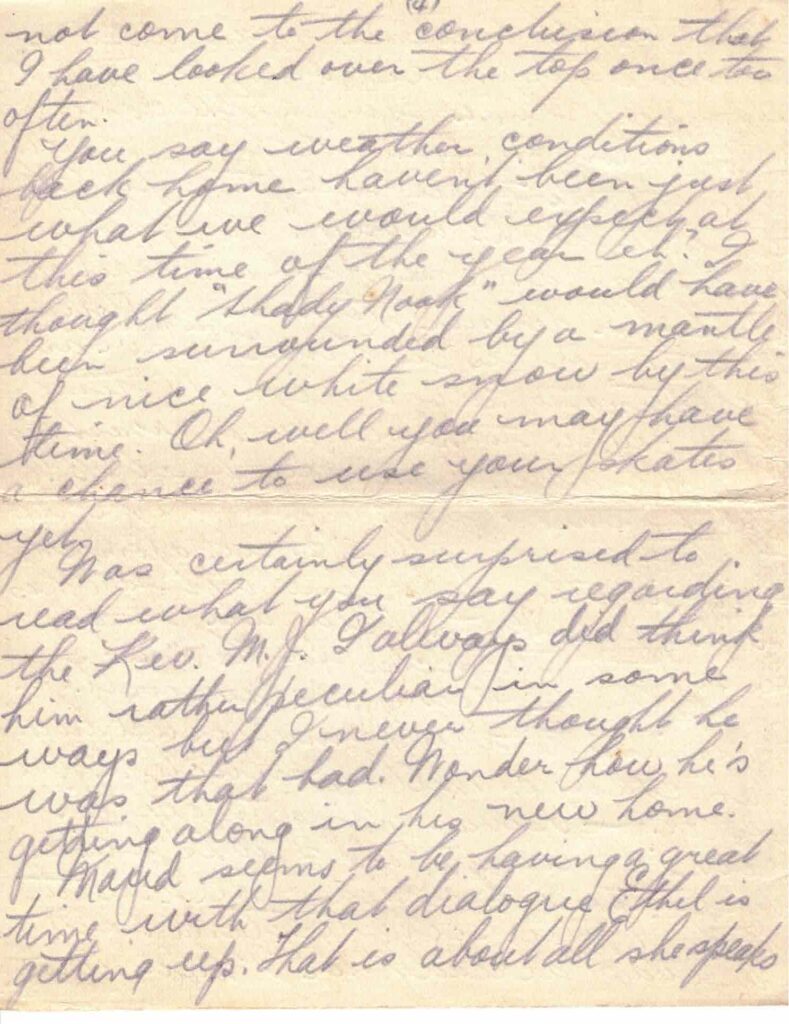 (4)
not come to the conclusion that
I have looked over the top once too
often.
You say weather conditions
back home haven't been just
what we would expect at
this time of the year eh? I
thought "Shady Nook" would have
been surrounded by a mantle
of nice white snow by this
time. Oh, well you may have
a chance to use your skates
yet.
Was certainly surprised to
read what you say regarding
the Rev. M.J. I always did think
him rather peculiar in some
ways but I never thought he
was that bad. Wonder how he's
getting along in his new home.
Maud seems to be having a great
time with that dialogue Ethel is
getting up. That is about all she speaks